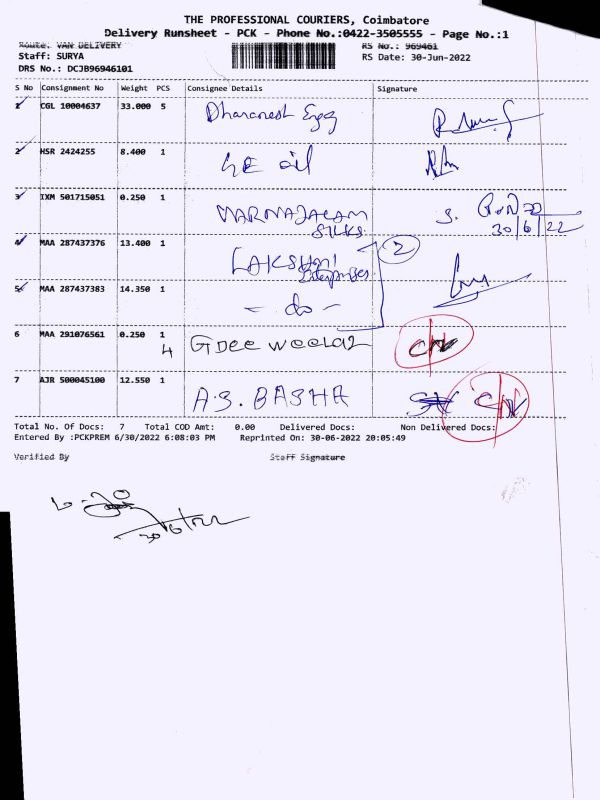 THE PROFESSIONAL COURIERS, Coimbatore
Delivery Runsheet - PCK - Phone No.:0422-3505555 - Page No.:1
Route: VAN DELIVERY RS No.: 969461
Staff: SURYA RS Date: 30-Jun-2022
DRS No.: DCJB96946101
S No Consignment No Weight PCS Consignee Details Signature
1 CGL 10004637 33.000 5
2 HSR 2424255 8.400 1 oil
3 IXM 501715051 0.250 1 SILKS 30/6/22
4 MAA 287437376 13.400 1 LAKSHMI Enterprises 2
5 MAA 287437383 14.350 1 - do -
6 MAA 291076561 0.250 1 GDee
4
7 AJR 500045100 12.550 1 A.S. BASHA
Total No. Of Docs: 7 Total COD Amt: 0.00 Delivered Docs: Non Delivered Docs:
Entered By :PCKPREM 6/30/2022 6:08:03 PM Reprinted On: 30-06-2022 20:05:49
Verified By Staff Signature